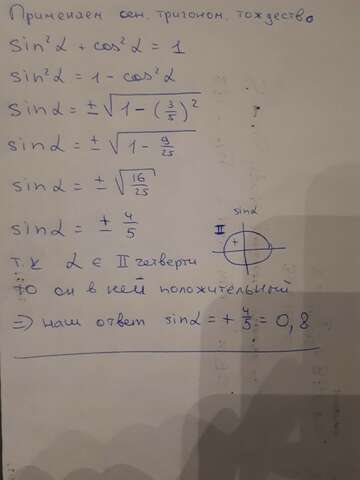 Применяем осн. тригоном. тождество
sin²α + cos²α = 1
sin²α = 1 - cos²α
sinα = ± √(1 - (3/5)²)
sinα = ± √(1 - 9/25)
sinα = ± √(16/25)
sinα = ± 4/5
sinα
II
+
т.к α ∈ II четверти
то он в ней положительный
=> наш ответ sinα = + 4/5 = 0,8